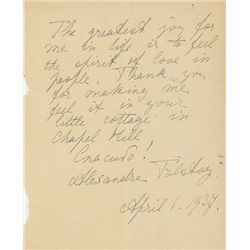 The greatest joy for
me in life is to feel
the spirit of love in
people. Thank you
for making me
feel it in your
little cottage in
Chapel Hill
Спасибо!
Alexandra Tolstoy.
April 1. 1937.